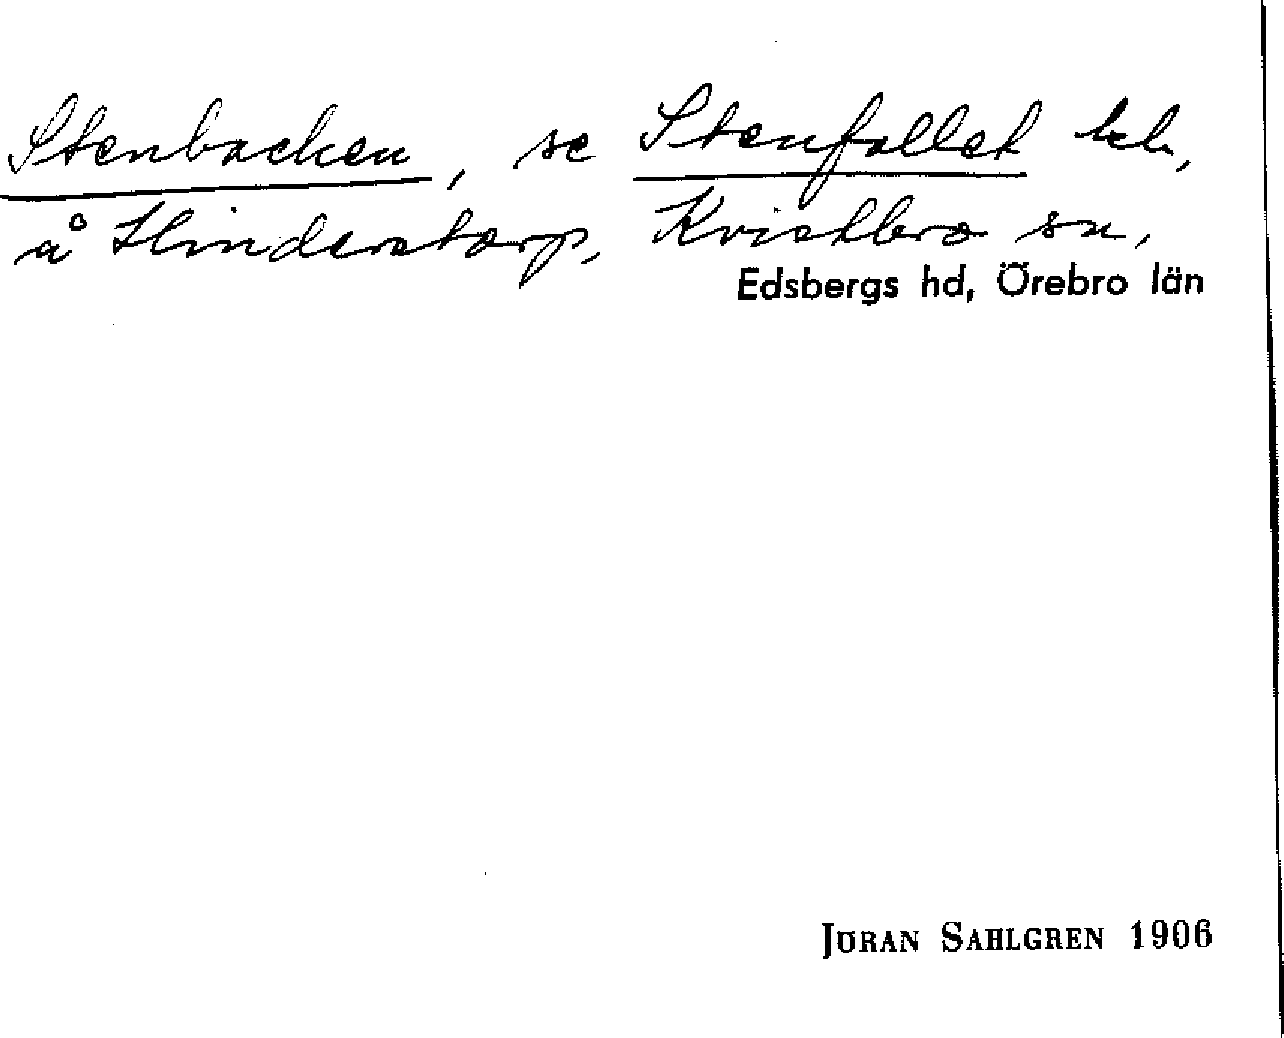 Stenbacken, se Stenfallet lch,
å Hinderstorp, Kvistbro sn,
Edsbergs hd, Örebro län
JÖRAN SAHLGREN 1906